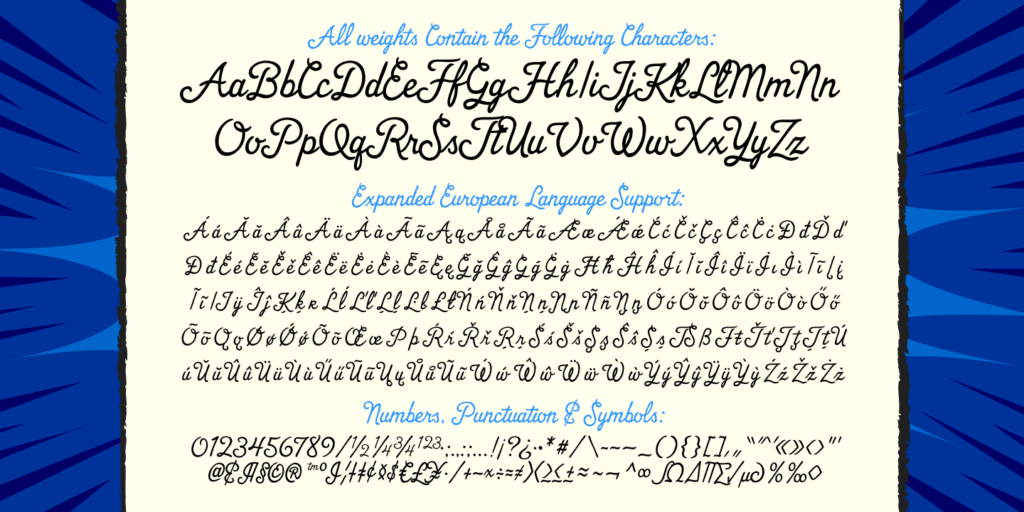 All weights Contain the Following Characters:
AaBbCcDdEeFfGgHhIiJjKkLlMmNn
OoPpQqRrSsTtUuVvWwXxYyZz
Expanded European Language Support:
ÁáĂăÂâÄäÀàĀāĄąÅåÃãÆæǼǽĆćČčÇçĈĉĊċÐđĎď
ĐđÉéĔĕĚěÊêËëĖėÈèĒēĘęĞğĜĝĢģĠġĦħĤĥÍíĬĭÎîÏïİiÌìĪīĮį
ĨĩIJijĴĵĶķĸĹĺĽľĻļĿŀŁłŃńŇňŅņŊŋÑñÓóŎŏÔôÖöÒòŐő
ŌōǪǫØøǾǿÕõŒœÞþŔŕŘřŖŗŚśŠšŞşŜŝȘșẞßŦŧŤťŢţȚțÚ
úŬŭÛûÜüÙùŰűŪūŲųŮůŨũẂẃŴŵẄẅẀẁÝýŶŷŸÿỲỳŹźŽžŻż
Numbers, Punctuation & Symbols:
0123456789/½¼¾¹²³.:,;…!¡?¿·•*#/\-–—_(){}[]‚„“”‘’«»‹›"'